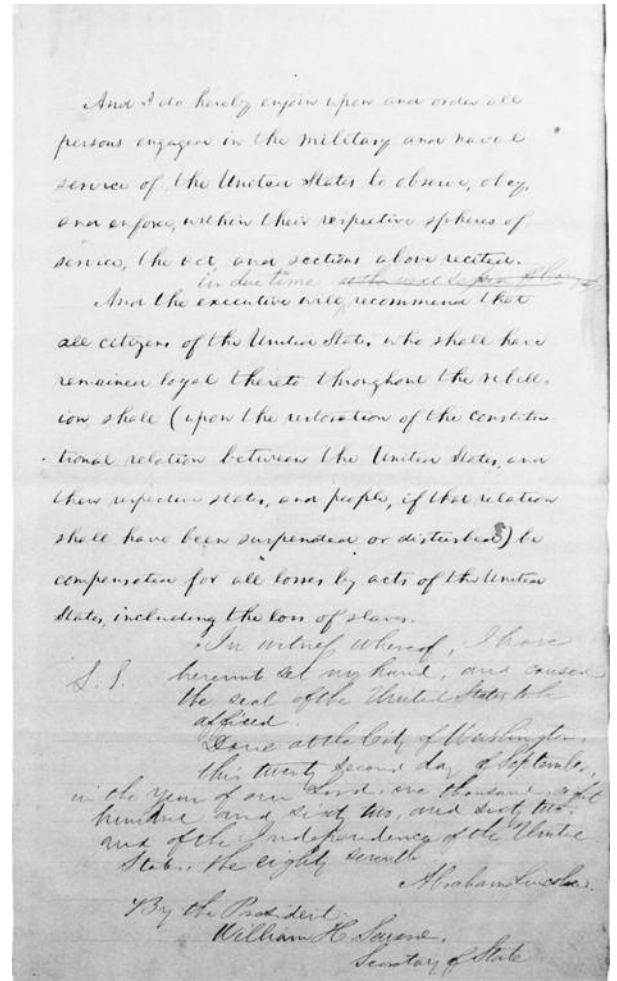 And I do hereby enjoin upon and order all
persons engaged in the military and naval
service of the United States to observe, obey,
and enforce, within their respective spheres of
service, the act, and sections above recited.
in due time
And the executive will recommend that
all citizens of the United States who shall have
remained loyal thereto throughout the rebell-
ion, shall (upon the restoration of the constitu-
tional relation between the United States, and
their respective states, and people, if that relation
shall have been suspended or disturbed) be
compensated for all losses by acts of the United
States, including the loss of slaves.
In witness whereof, I have
L. S. hereunto set my hand, and caused
the seal of the United States to be
affixed.
Done at the City of Washington,
this twenty second day of September,
in the year of our Lord, one thousand, eight
hundred and sixty two, and sixty two,
and of the Independence of the United
States, the eighty seventh.
Abraham Lincoln.
By the President.
William H. Seward,
Secretary of State